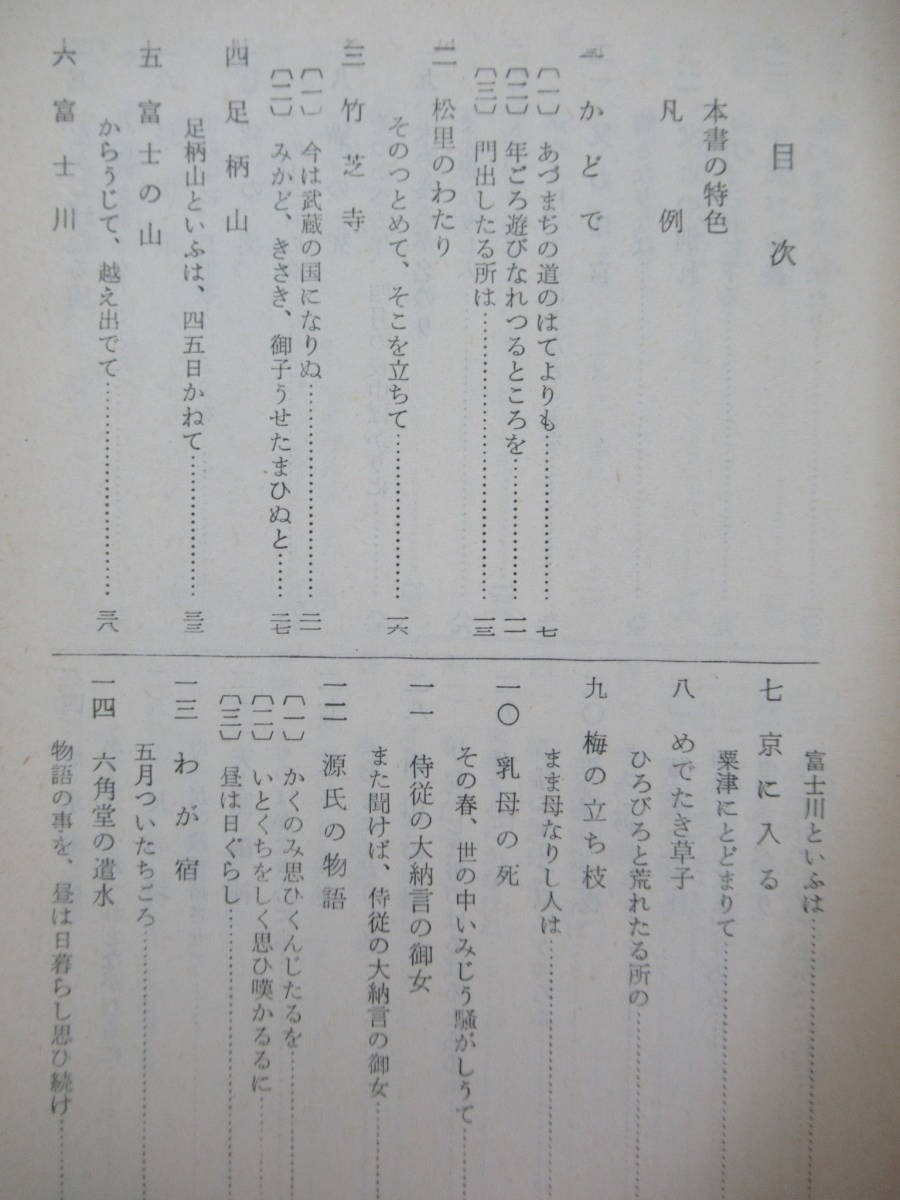 目次
本書の特色
凡例
一 かどで
〔一〕 あづまぢの道のはてよりも……………… 七
〔二〕 年ごろ遊びなれつるところを…………… 一一
〔三〕 門出したる所は……………………… 一三
二 松里のわたり
そのつとめて、そこを立ちて……………… 一六
三 竹芝寺
〔一〕 今は武蔵の国になりぬ……………………… 二一
〔二〕 みかど、きさき、御子うせたまひぬと…… 二七
四 足柄山
足柄山といふは、四五日かねて……………… 三三
五 富士の山
からうじて、越え出でて……………………… 三八
六 富士川
富士川といふは………………
七 京に入る
粟津にとどまりて………………
八 めでたき草子
ひろびろと荒れたる所の…………
九 梅の立ち枝
まま母なりし人は………………
一〇 乳母の死
その春、世の中いみじう騒がしうて……
一一 侍従の大納言の御女
また聞けば、侍従の大納言の御女……
一二 源氏の物語
〔一〕 かくのみ思ひくんじたるを…………
〔二〕 いとくちをしく思ひ嘆かるるに………
〔三〕 昼は日ぐらし………………
一三 わが宿
五月ついたちごろ………………
一四 六角堂の遣水
物語の事を、昼は日暮らし思ひ続け……